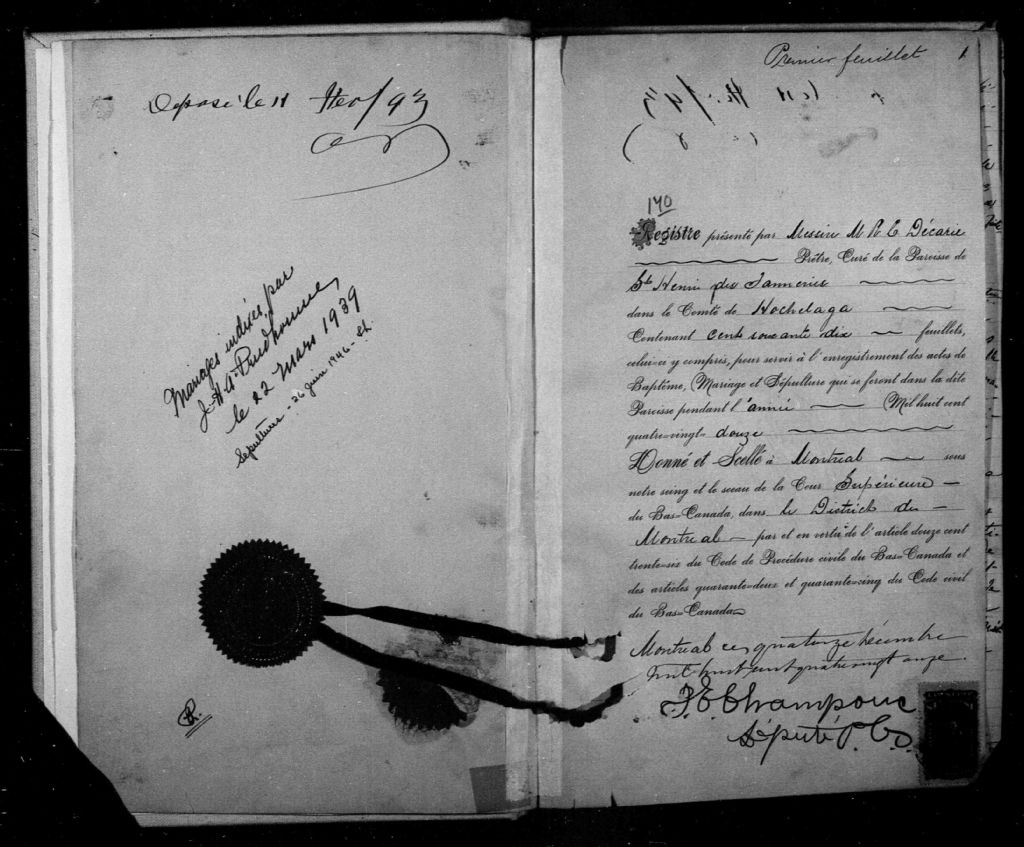 Déposé le 11 /93
Mariages indexés par
J. A. Prudhomme,
le 22 Mars 1939
Sépultures - 26 Juin 1946 -
Premier feuillet 1
170
Registre présenté par Messire M R E Décarie
Prêtre, Curé de la Paroisse de
St Henri des Tanneries
dans le Comté de Hochelaga
Contenant cent soixante dix feuillets,
celui-ci y compris, pour servir à l'enregistrement des actes de
Baptême, Mariage et Sépulture qui se feront dans la dite
Paroisse pendant l'année Mil huit cent
quatre-vingt-douze
Donné et Scellé à Montréal sous
notre seing et le sceau de la Cour Supérieure
du Bas-Canada, dans le District de
Montréal par et en vertu de l'article douze cent
trente-six du Code de Procédure civile du Bas-Canada et
des articles quarante-deux et quarante-cinq du Code civil
du Bas-Canada
Montreal ce quatorze décembre
mil huit cent quatre vingt onze
Champoux
Député P.